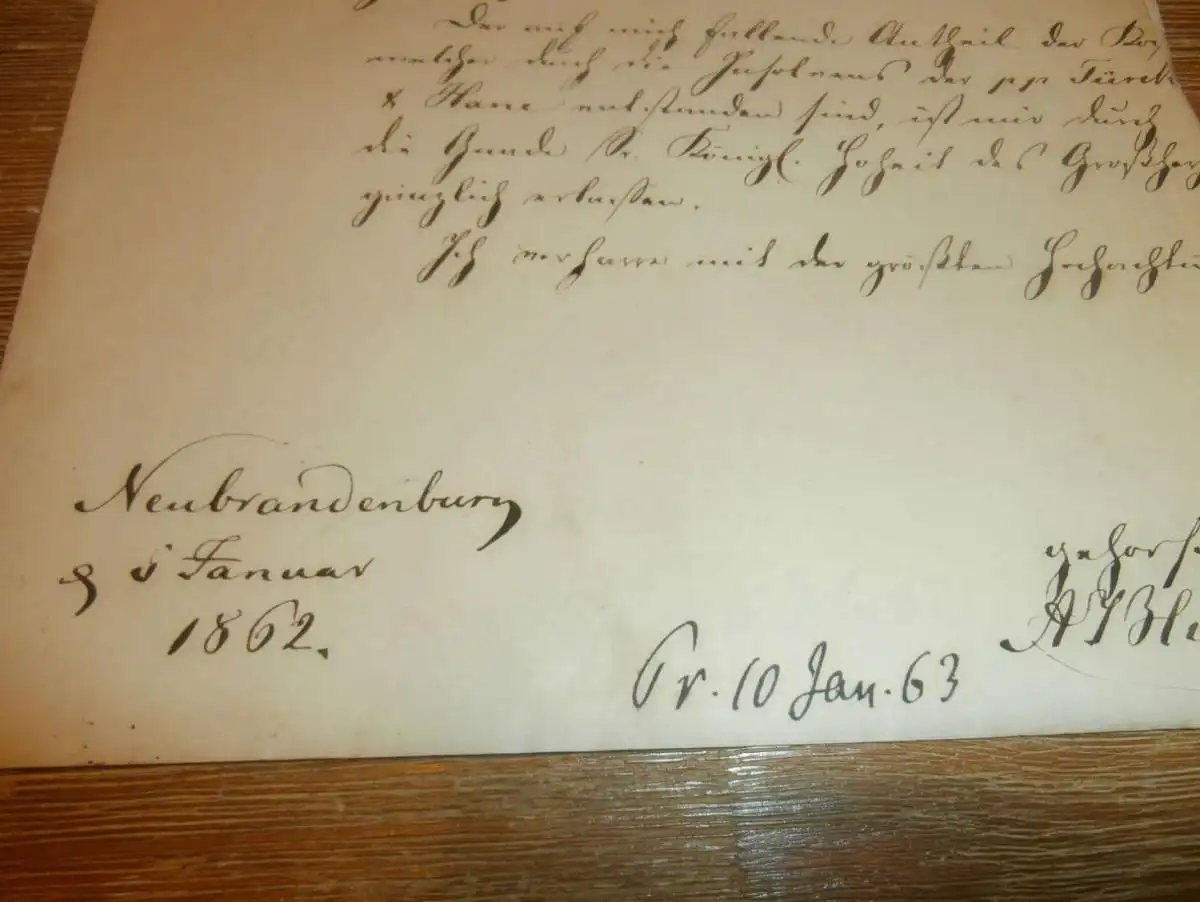 Der auf mich fallende Antheil der Kos
welcher durch die Insolvenz der pp Türck
& Hane entstanden sind, ist mir durch
die Gnade Sr. Königl. Hoheit des Großher
gänzlich erlassen.
Ich verharre mit der größten Hochachtu
Neubrandenburg
Januar
1862.
gehors
Pr. 10 Jan. 63